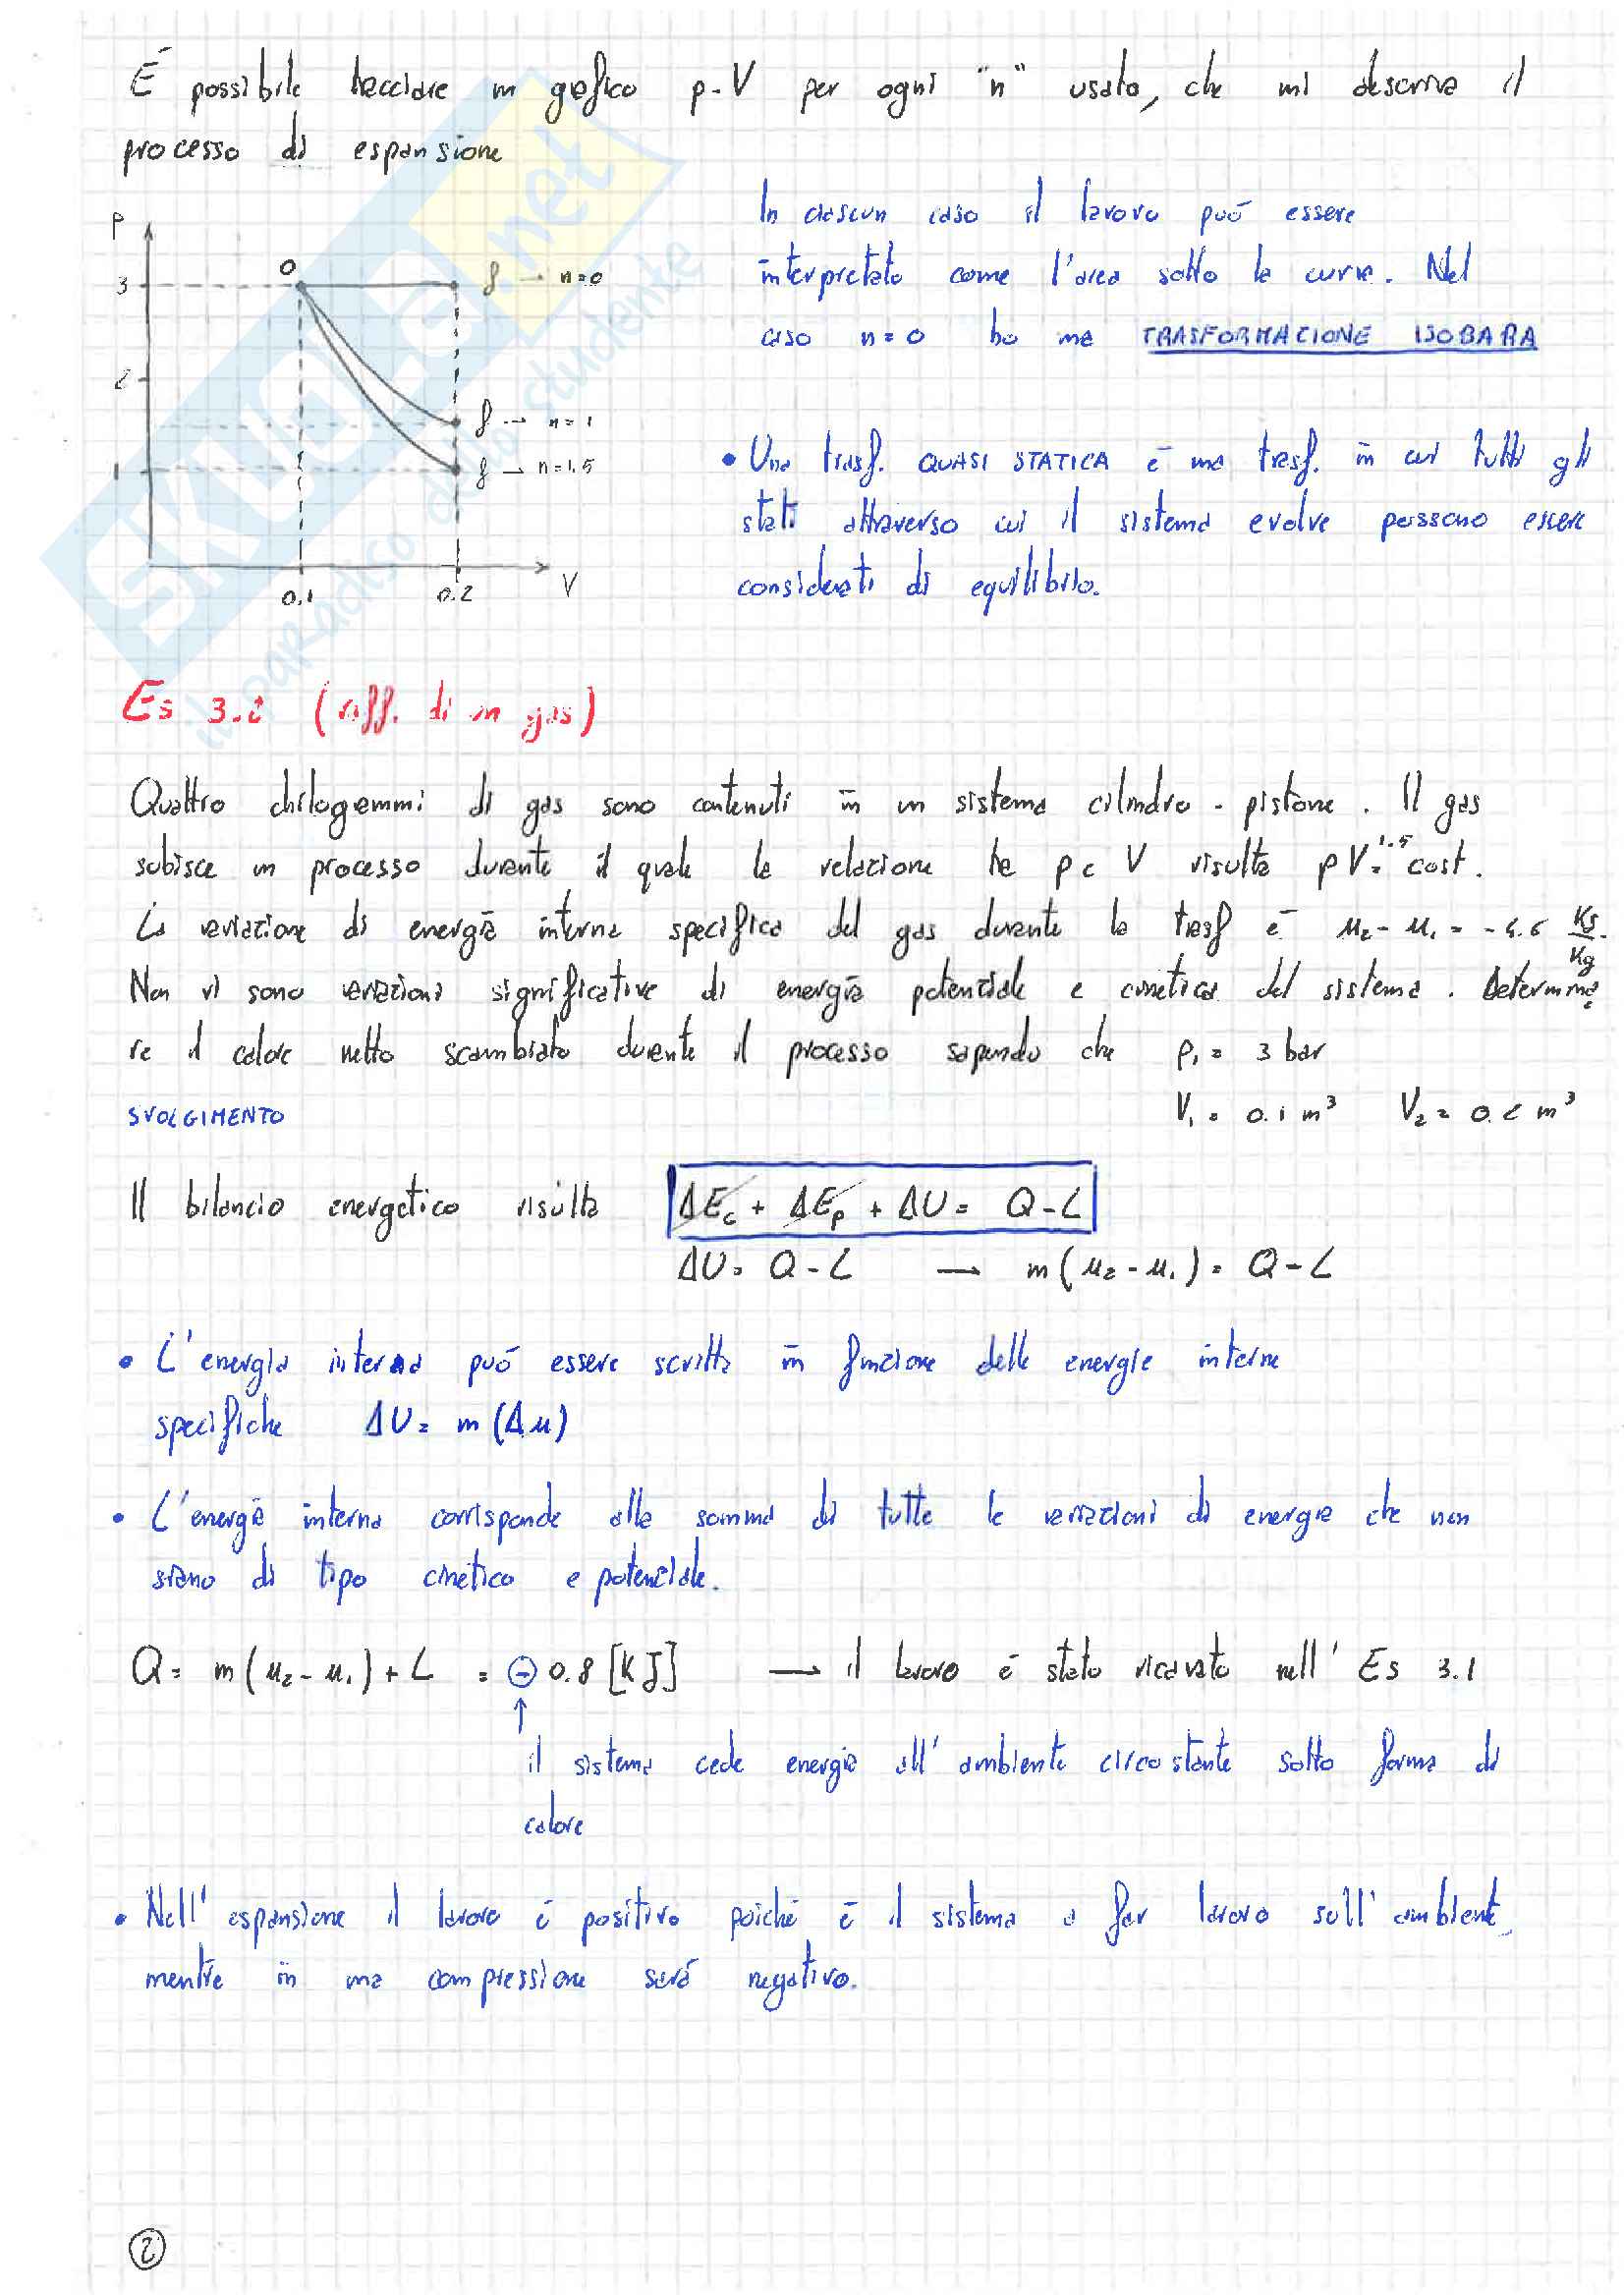 È possibile tracciare un grafico p-V per ogni "n" usato, che mi descriva il
processo di espansione
P
3
2
1
0
f → n=0
f → n=1
f → n=1,5
0.1
0.2
V
In ciascun caso il lavoro può essere
interpretato come l'area sotto la curva. Nel
caso n=0 ho una TRASFORMAZIONE ISOBARA
• Una trasf. QUASI STATICA è una trasf. in cui tutti gli
stati attraverso cui il sistema evolve possono essere
considerati di equilibrio.
Es 3.2 (raff. di un gas)
Quattro chilogrammi di gas sono contenuti in un sistema cilindro-pistone. Il gas
subisce un processo durante il quale la relazione tra p e V risulta pV^1.5 = cost.
La variazione di energia interna specifica del gas durante la trasf è u₂-u₁ = -4.6 KJ/Kg.
Non vi sono variazioni significative di energia potenziale e cinetica del sistema. Determina
re il calore netto scambiato durante il processo sapendo che p₁ = 3 bar
V₁ = 0.1 m³ V₂ = 0.2 m³
SVOLGIMENTO
Il bilancio energetico risulta ΔE_c + ΔE_p + ΔU = Q-L
ΔU = Q-L → m(u₂-u₁) = Q-L
• L'energia interna può essere scritta in funzione delle energie interne
specifiche ΔU = m(Δu)
• L'energia interna corrisponde alla somma di tutte le variazioni di energia che non
siano di tipo cinetico e potenziale.
Q = m(u₂-u₁)+L = -0.8 [KJ] → il lavoro è stato ricavato nell'Es 3.1
↑
il sistema cede energia all'ambiente circostante sotto forma di
calore
• Nell'espansione il lavoro è positivo poiché è il sistema a far lavoro sull'ambiente,
mentre in una compressione sarà negativo.
2
SKUOLA.net
il paradiso dello studente